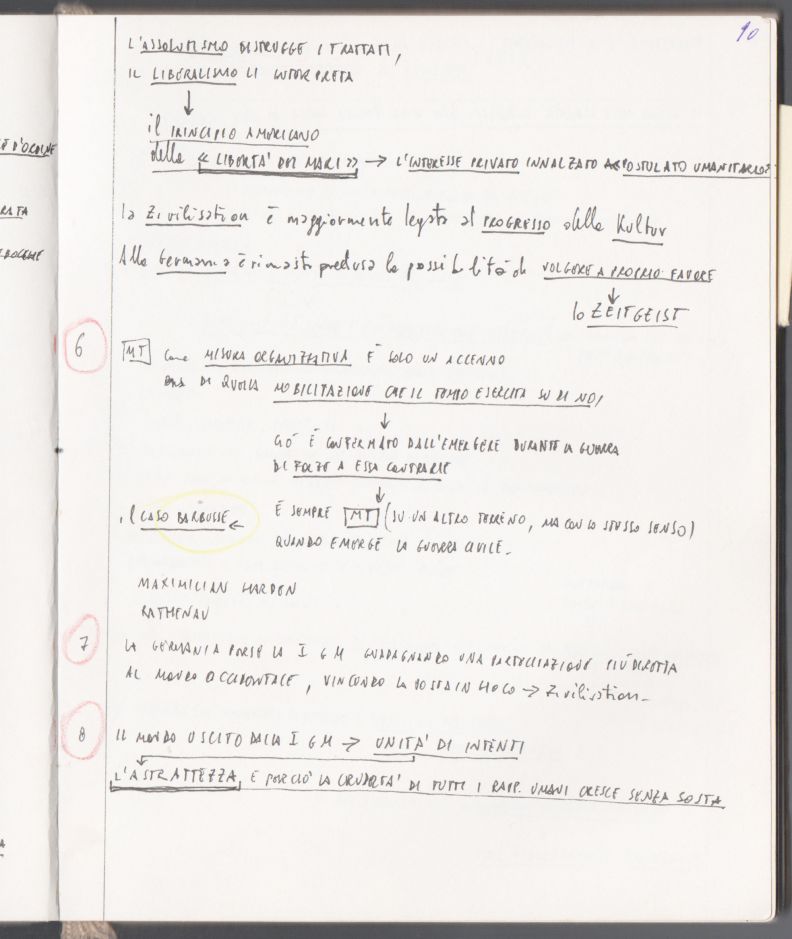 90
L'ASSOLUTISMO DISTRUGGE I TRATTATI,
IL LIBERALISMO LI INTERPRETA
↓
il PRINCIPIO AMERICANO
della « LIBERTA' DEI MARI » → L'INTERESSE PRIVATO INNALZATO A POSTULATO UMANITARIO
la Zivilisation è maggiormente legata al PROGRESSO della Kultur
Alla Germania è rimasta preclusa la possibilità di VOLGERE A PROPRIO FAVORE
↓
lo ZEITGEIST
6
MT come MISURA ORGANIZZATIVA È SOLO UN ACCENNO
DI QUELLA MOBILITAZIONE CHE IL TEMPO ESERCITA SU DI NOI
↓
CIÒ È CONFERMATO DALL'EMERGERE DURANTE LA GUERRA
DI FORZE A ESSA CONTRARIE
↓
il CASO BARBUSSE ← È SEMPRE MT (SU UN ALTRO TERRENO, MA CON LO STESSO SENSO)
QUANDO EMERGE LA GUERRA CIVILE.
MAXIMILIAN HARDEN
RATHENAU
7
LA GERMANIA PERSE LA I G M GUADAGNANDO UNA PARTECIPAZIONE PIÙ DIRETTA
AL MONDO OCCIDENTALE, VINCENDO LA POSTA IN GIOCO → Zivilisation.
8
IL MONDO USCITO DALLA I G M → UNITA' DI INTENTI
L'ASTRATTEZZA, E PERCIÒ LA CRUDELTA' DI TUTTI I RAPP. UMANI CRESCE SENZA SOSTA